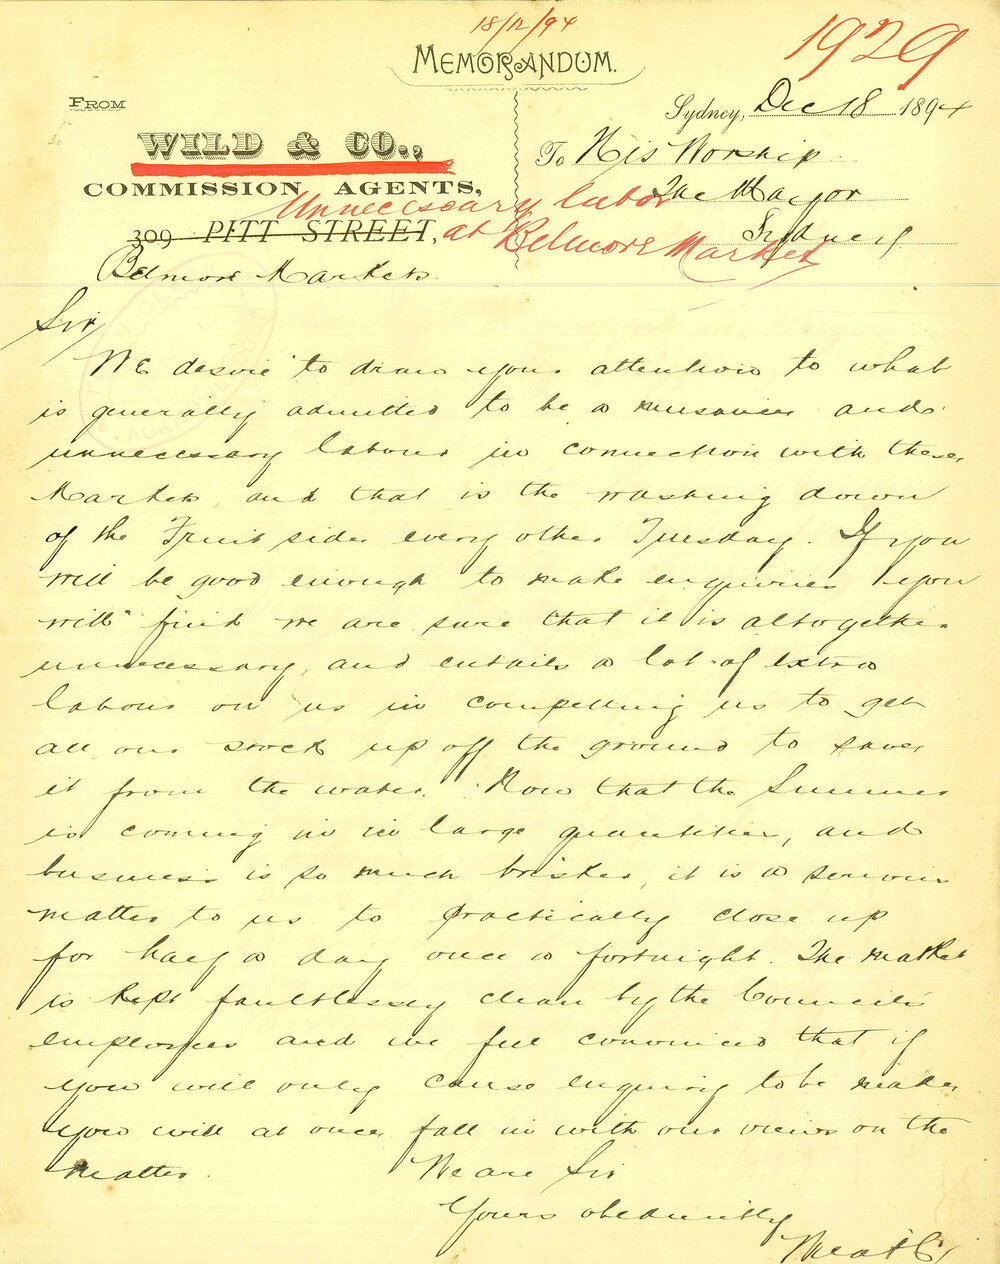 18/12/94
1929
MEMORANDUM.
FROM
Sydney, Dec 18 1894
WILD & CO.,
To His Worship
COMMISSION AGENTS,
The Mayor
Unnecessary labor
309 PITT STREET,
Sydney
at Belmore Market
Belmore Markets.
Sir,
We desire to draw your attention to what
is generally admitted to be a nuisance and
unnecessary labour in connection with these
Markets, and that is the washing down
of the Fruit sides every other Tuesday. If you
will be good enough to make enquiries you
will find we are sure that it is altogether
unnecessary, and entails a lot of extra
labour on us in compelling us to get
all our stock up off the ground to save
it from the water. Now that the Summer
is coming in in large quantities, and
business is so much brisker, it is a serious
matter to us to practically close up
for half a day once a fortnight. The market
is kept faultlessly clean by the Council's
employees and we feel convinced that if
you will only cause enquiry to be made
you will at once fall in with our views on the
matter. We are Sir
Yours obediently